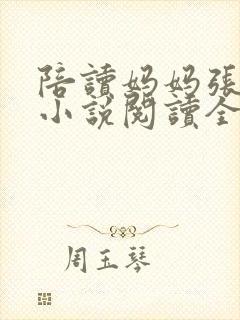 陪讀媽媽張
小說閱讀全
周玉琴